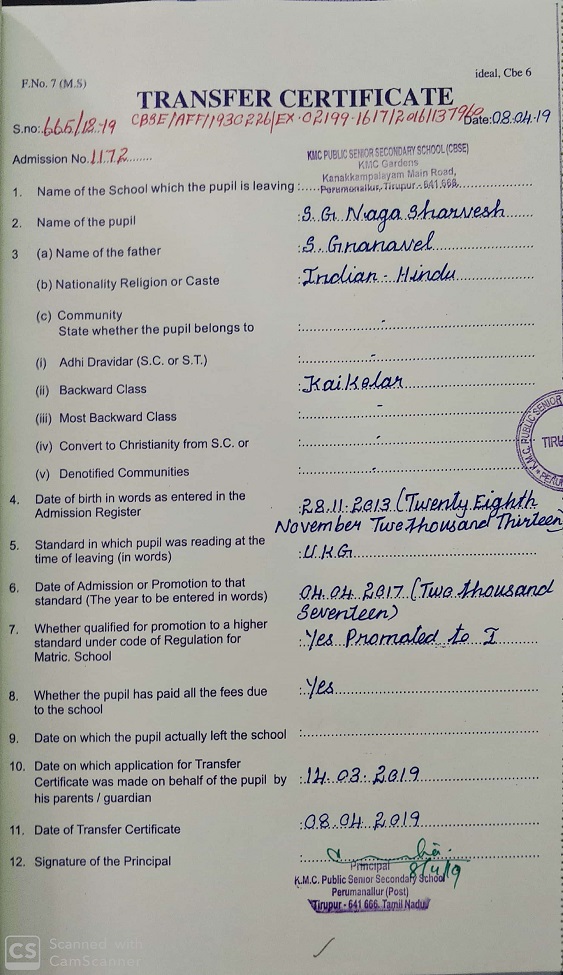 F.No. 7 (M.S) ideal, Cbe 6
TRANSFER CERTIFICATE
S.no: 665/18-19 CBSE/AFF/1930226/EX-02199-1617/2016/1379 Date: 08.04.19
Admission No. 1172
KMC PUBLIC SENIOR SECONDARY SCHOOL (CBSE)
KMC Gardens
Kanakkampalayam Main Road,
1. Name of the School which the pupil is leaving : Perumanallur, Tirupur - 641 666.
2. Name of the pupil : S. G. Naga Sharvesh
3 (a) Name of the father : S. Gnanavel
(b) Nationality Religion or Caste : Indian - Hindu
(c) Community
State whether the pupil belongs to : -
(i) Adhi Dravidar (S.C. or S.T.) : -
(ii) Backward Class : Kaikolar
(iii) Most Backward Class : -
(iv) Convert to Christianity from S.C. or : -
(v) Denotified Communities : -
K.M.C. PUBLIC SENIOR
TIRU
4. Date of birth in words as entered in the : 28.11.2013 (Twenty Eighth
Admission Register November Two thousand Thirteen)
5. Standard in which pupil was reading at the : UKG
time of leaving (in words)
6. Date of Admission or Promotion to that : 04.04.2017 (Two thousand
standard (The year to be entered in words) Seventeen)
7. Whether qualified for promotion to a higher : Yes Promoted to I
standard under code of Regulation for
Matric. School
8. Whether the pupil has paid all the fees due : Yes
to the school
9. Date on which the pupil actually left the school :
10. Date on which application for Transfer
Certificate was made on behalf of the pupil by : 14.03.2019
his parents / guardian
11. Date of Transfer Certificate : 08.04.2019
12. Signature of the Principal :
Principal 8/4/19
K.M.C. Public Senior Secondary School
Perumanallur (Post)
Tirupur - 641 666. Tamil Nadu
CS Scanned with
CamScanner